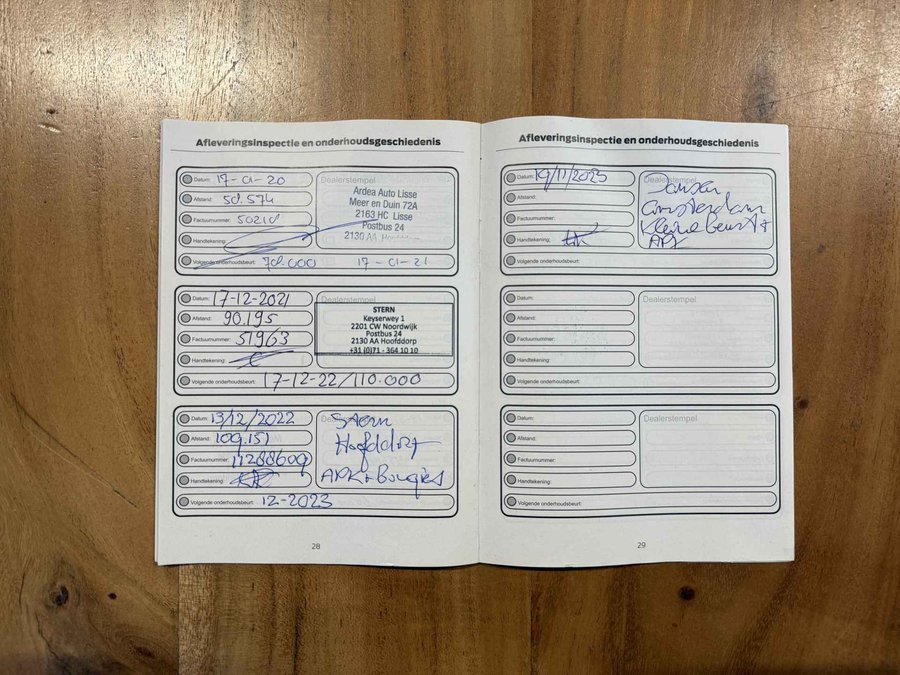 Afleveringsinspectie en onderhoudsgeschiedenis
Datum: 17-01-20
Dealerstempel
Afstand: 50.574
Ardea Auto Lisse
Meer en Duin 72A
2163 HC Lisse
Postbus 24
2130 AA
Factuurnummer:
Handtekening:
Volgende onderhoudsbeurt: 70.000 17-01-21
Datum: 17-12-2021
Dealerstempel
Afstand: 90.195
Factuurnummer: 51963
Handtekening:
STERN
Keyserwey 1
2201 CW Noordwijk
Postbus 24
2130 AA Hoofddorp
+31 (0)71 - 364 10 10
Volgende onderhoudsbeurt: 17-12-22/110.000
Datum: 13/12/2022
Afstand: 109.151
Factuurnummer: 11288609
Handtekening:
Stern
Hoofddorp
APK + Bougies
Volgende onderhoudsbeurt: 12-2023
28
Afleveringsinspectie en onderhoudsgeschiedenis
Datum: 19/11/2023
Dealerstempel
Afstand:
Factuurnummer:
Handtekening:
Amsterdam
kleine beurt +
APK
Volgende onderhoudsbeurt:
Datum:
Dealerstempel
Afstand:
Factuurnummer:
Handtekening:
Volgende onderhoudsbeurt:
Datum:
Dealerstempel
Afstand:
Factuurnummer:
Handtekening:
Volgende onderhoudsbeurt:
29